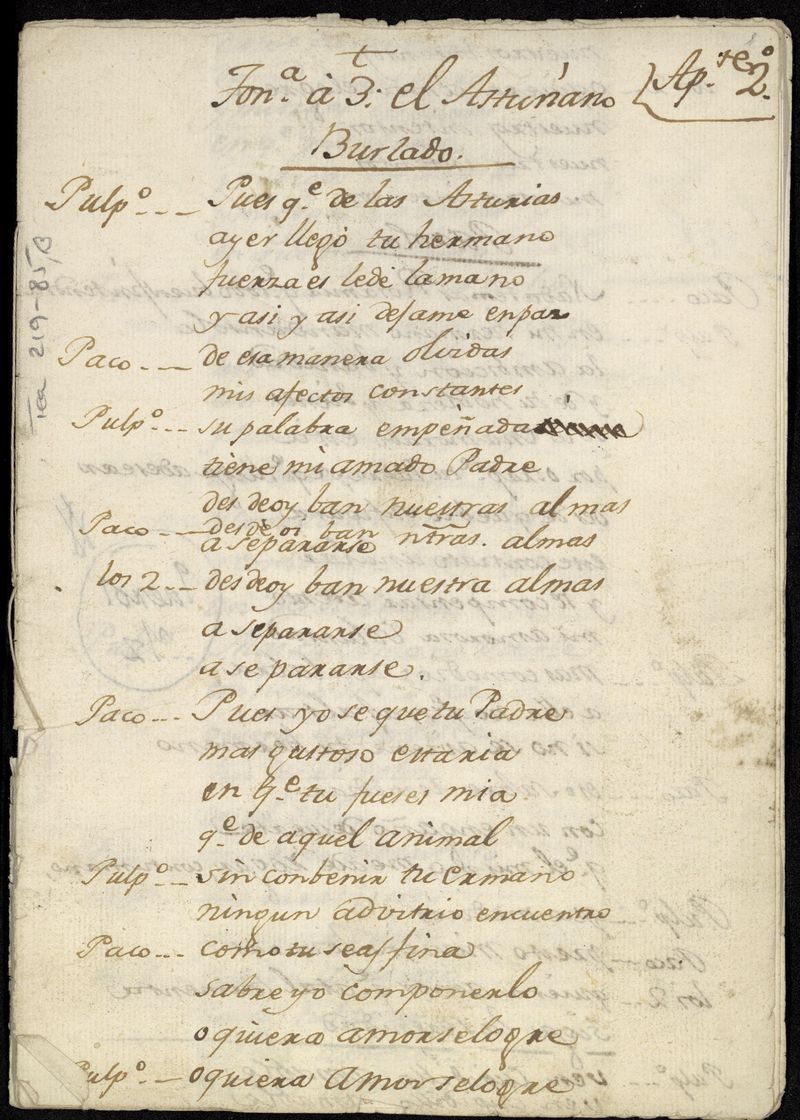 Ton.ª à 3. el Asturiano
Ap.te 2.º
Burlado.
Pulp.º--- Pues q.e de las Asturias
ayer llegó tu hermano
fuerza es lede la mano
y asi y asi dejame enpaz
Paco.-- de esa manera olvidas
mis afectos constantes
Pulp.º--- su palabra empeñada
tiene mi amado Padre
desdeoy ban nuestras almas
Paco--- desde oi ban ntras. almas
a separarse
los 2.-- desdeoy ban nuestra almas
a separarse
a separarse.
Paco--- Pues yo se que tu Padre
mas gustoso estaria
en q.e tu fueses mia
q.e de aquel animal
Pulp.º-- sin conbenir tu ermano
ningun advitrio encuentro
Paco--- como tu seas fina
sabre yo componerlo
o quiera amor se logre
Pulp.º-- o quiera Amor se logre
Tea 219-85, B